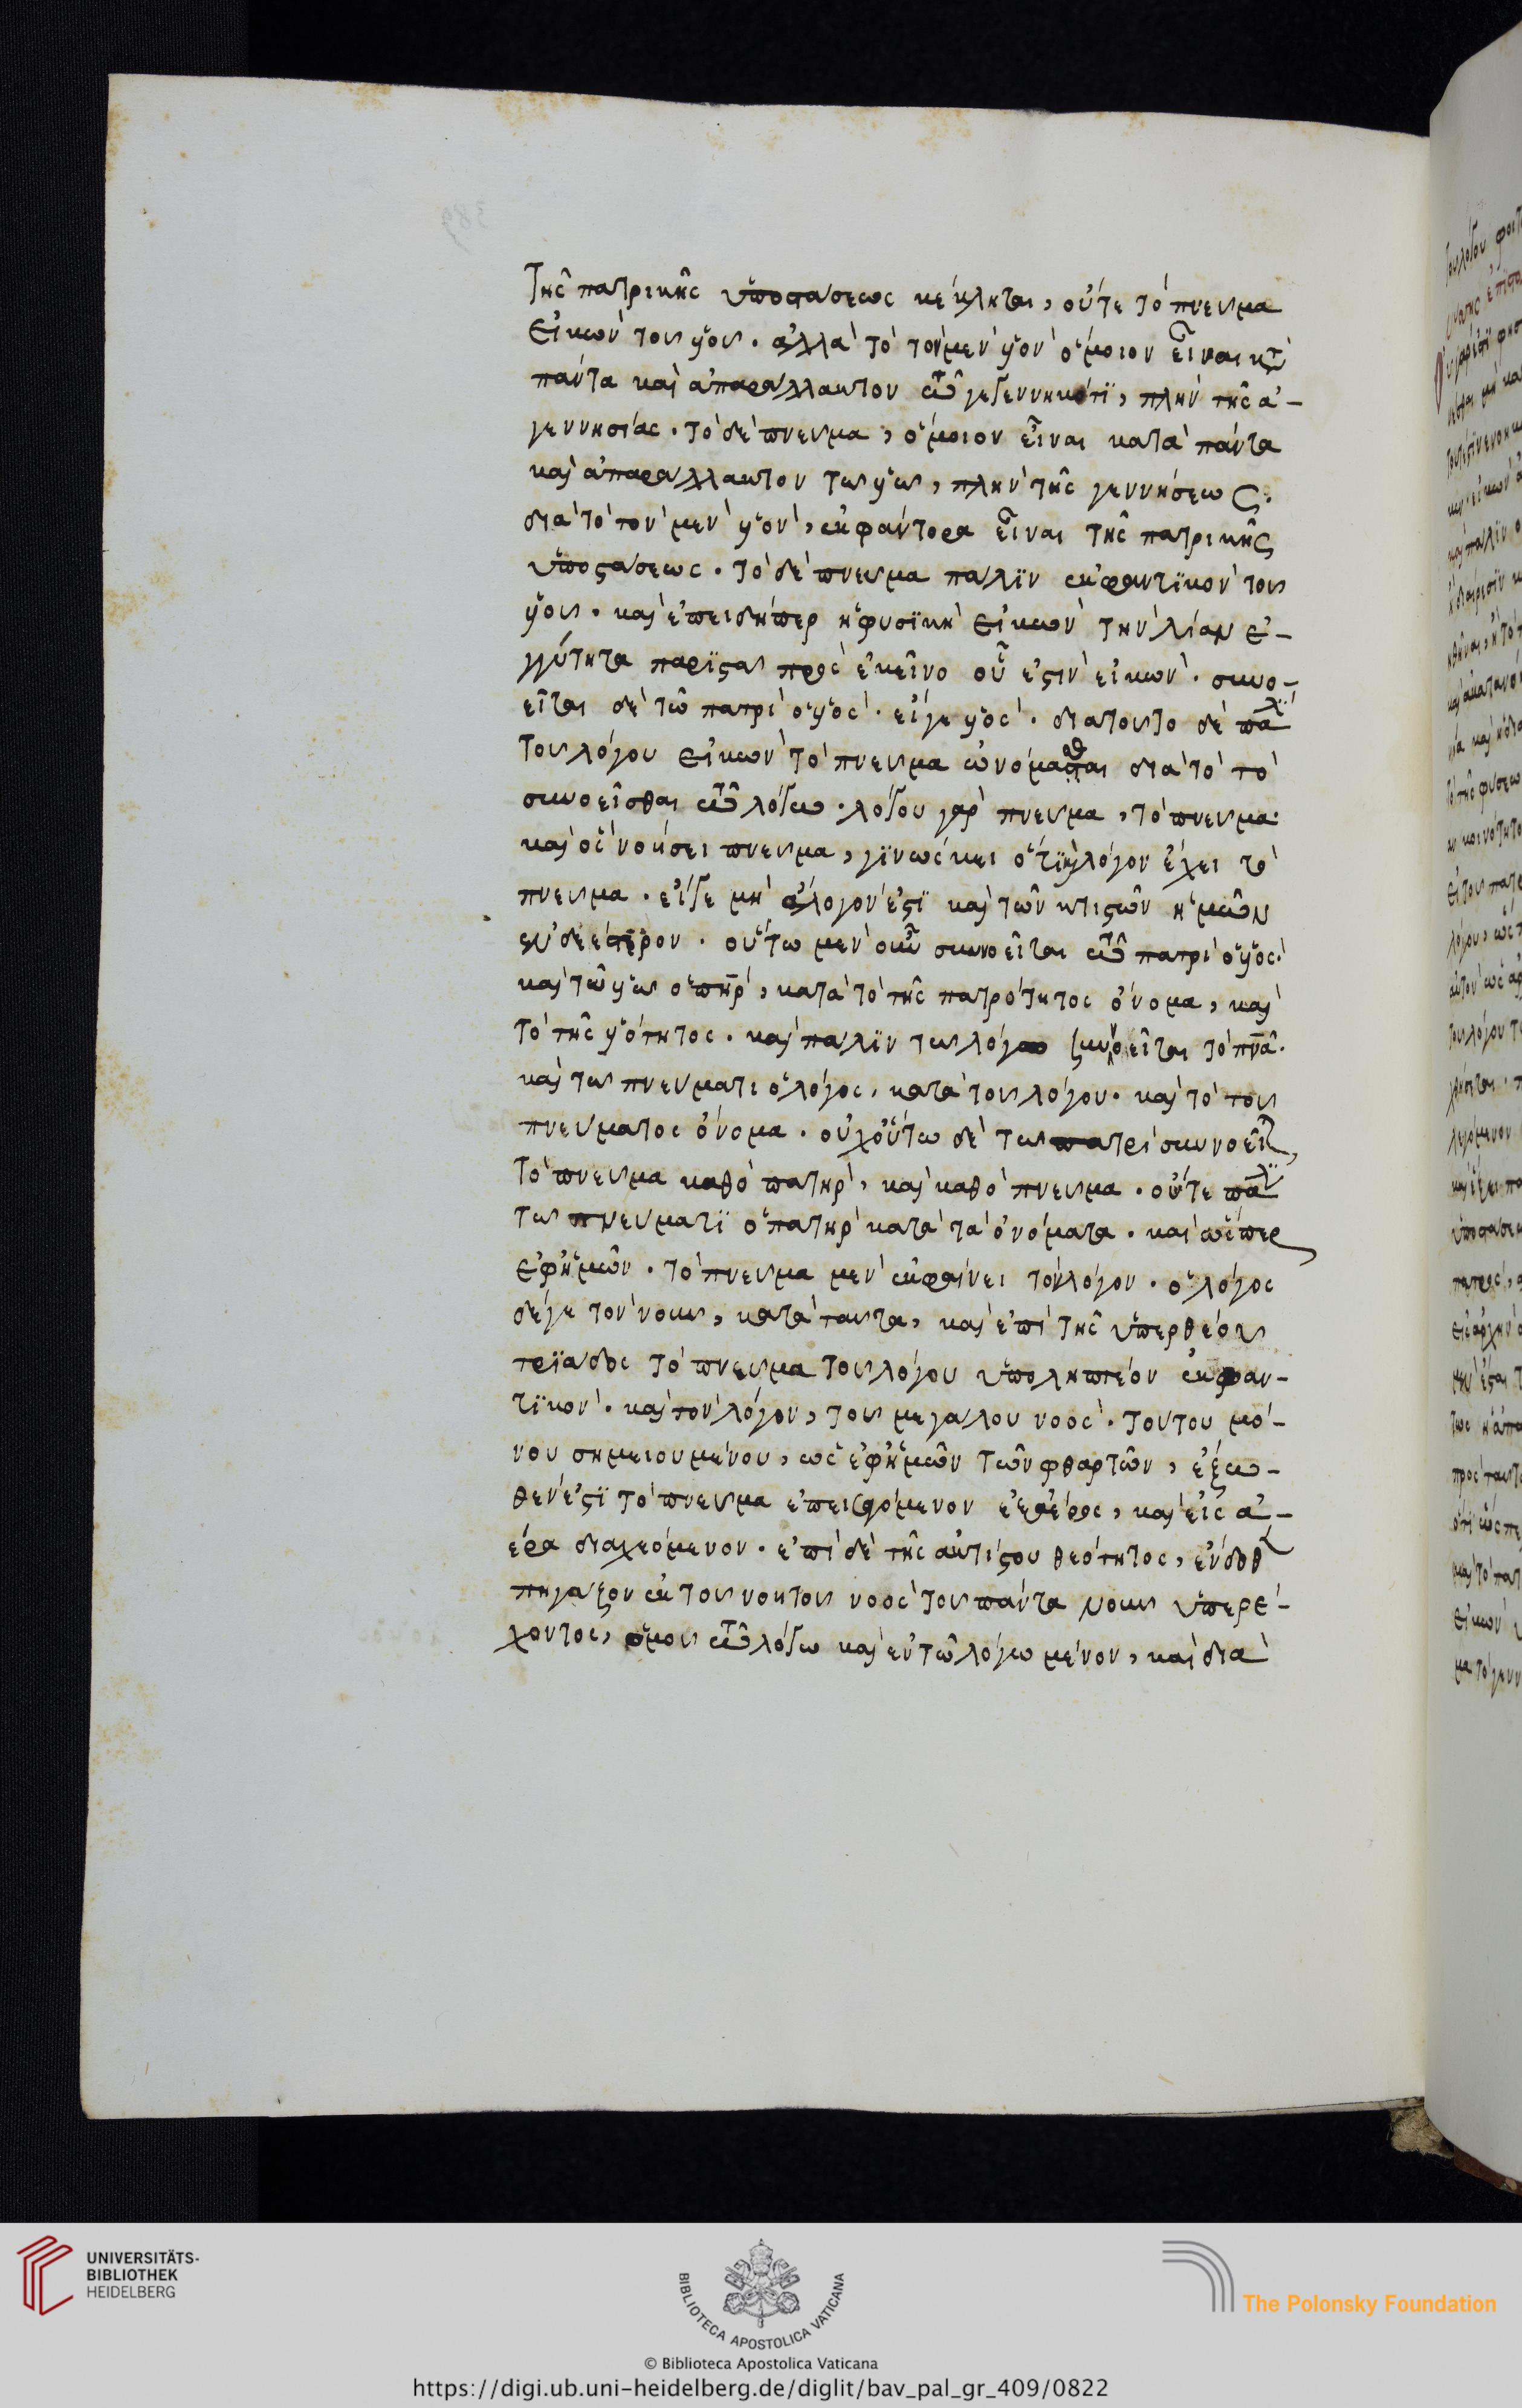 Τῆς πατρικῆς ὑποστάσεως κέκληται, οὔτε τὸ πνεῦμα
εἰκὼν τοῦ υἱοῦ. ἀλλὰ τὸ τὸν μὲν υἱὸν ὅμοιον εἶναι κτ̀
πάντα καὶ ἀπαράλλακτον τῶ γεγεννηκότϊ, πλὴν τῆς ἀ-
γεννησίας. τὸ δὲ πνεῦμα, ὅμοιον εἶναι κατὰ πάντα
καὶ ἀπαράλλακτον τῶ υἱῶ, πλὴν τῆς γεννήσεως.
διὰ τὸ τὸν μὲν υἱὸν, ἐκφάντορα εἶναι τῆς πατρικῆς
ὑποστάσεως. τὸ δὲ πνεῦμα πάλϊν ἐκφαντϊκὸν τοῦ
υἱοῦ. καὶ ἐπειδήπερ ἡ φυσϊκὴ εἰκὼν τὴν λίαν ἐ-
γγύτητα παρϊστᾶ πρὸς ἐκεῖνο οὗ ἐστὶν εἰκὼν. συνο-
εῖται δὲ τῶ πατρὶ ὁ υἱὸς. εἴγε υἱὸς. διατοῦτο δὲ πάλϊ
τοῦ λόγου εἰκὼν τὸ πνεῦμα ὠνόμασται διὰ τὸ τὸ
συνοεῖσθαι τῶ λόγω. λόγου γὰρ πνεῦμα, τὸ πνεῦμα.
καὶ ὃς νοήσει πνεῦμα, γϊνώσκει ὅτϊ καὶ λόγον ἔχει τὸ
πνεῦμα. εἴδε μὴ ἄλογόν ἐστϊ καὶ τῶν κτιστῶν ἡμῶν
ἐνδεέστερον. οὕτω μὲν οὖν συνοεῖται τῶ πατρὶ ὁ υἱὸς.
καὶ τῶ υἱῶ ὁ πηρ̀, κατὰ τὸ τῆς πατρότητος ὄνομα, καὶ
τὸ τῆς υἱότητος. καὶ πάλϊν τῶ λόγω ξυνοεῖται τὸ πνᾶ.
καὶ τῶ πνεύματι ὁ λόγος, κατὰ τοῦ λόγου. καὶ τὸ τοῦ
πνεύματος ὄνομα. οὐχοὕτω δὲ τῶ πατρὶ συνοεῖτ,
τὸ πνεῦμα καθὸ πατὴρ, καὶ καθὸ πνεῦμα. οὔτε πάλϊν
τῶ πνεύματϊ ὁ πατὴρ κατὰ τὰ ὀνόματα. καὶ ὥσπερ
ἐφἡμῶν. τὸ πνεῦμα μὲν ἐκφαίνει τὸν λόγον. ὁ λόγος
δέγε τὸν νοῦν, κατὰ ταῦτα, καὶ ἐπὶ τῆς ὑπερθέου
τρϊάδος τὸ πνεῦμα τοῦ λόγου ὑποληπτέον ἐκφαν-
τϊκὸν. καὶ τὸν λόγον, τοῦ μεγάλου νοὸς. τούτου μό-
νου σημειουμένου, ὡς ἐφἡμῶν τῶν φθαρτῶν, ἔξω-
θέν ἐστϊ τὸ πνεῦμα ἐπεισφρόμενον ἐξ ἀέρος, καὶ εἰς ἀ-
έρα διαχεόμενον. ἐπὶ δὲ τῆς ἀκτίστου θεότητος, ἔνδοθ
πηγάζον ἐκ τοῦ νοητοῦ νοὸς τοῦ πάντα νοῦν ὑπερέ-
χοντος, ὁμοῦ τῶ λόγω καὶ ἐν τῶ λόγω μένον, καὶ διὰ
UNIVERSITÄTS-
BIBLIOTHEK
HEIDELBERG
BIBLIOTECA APOSTOLICA VATICANA
The Polonsky Foundation
© Biblioteca Apostolica Vaticana
https://digi.ub.uni-heidelberg.de/diglit/bav_pal_gr_409/0822